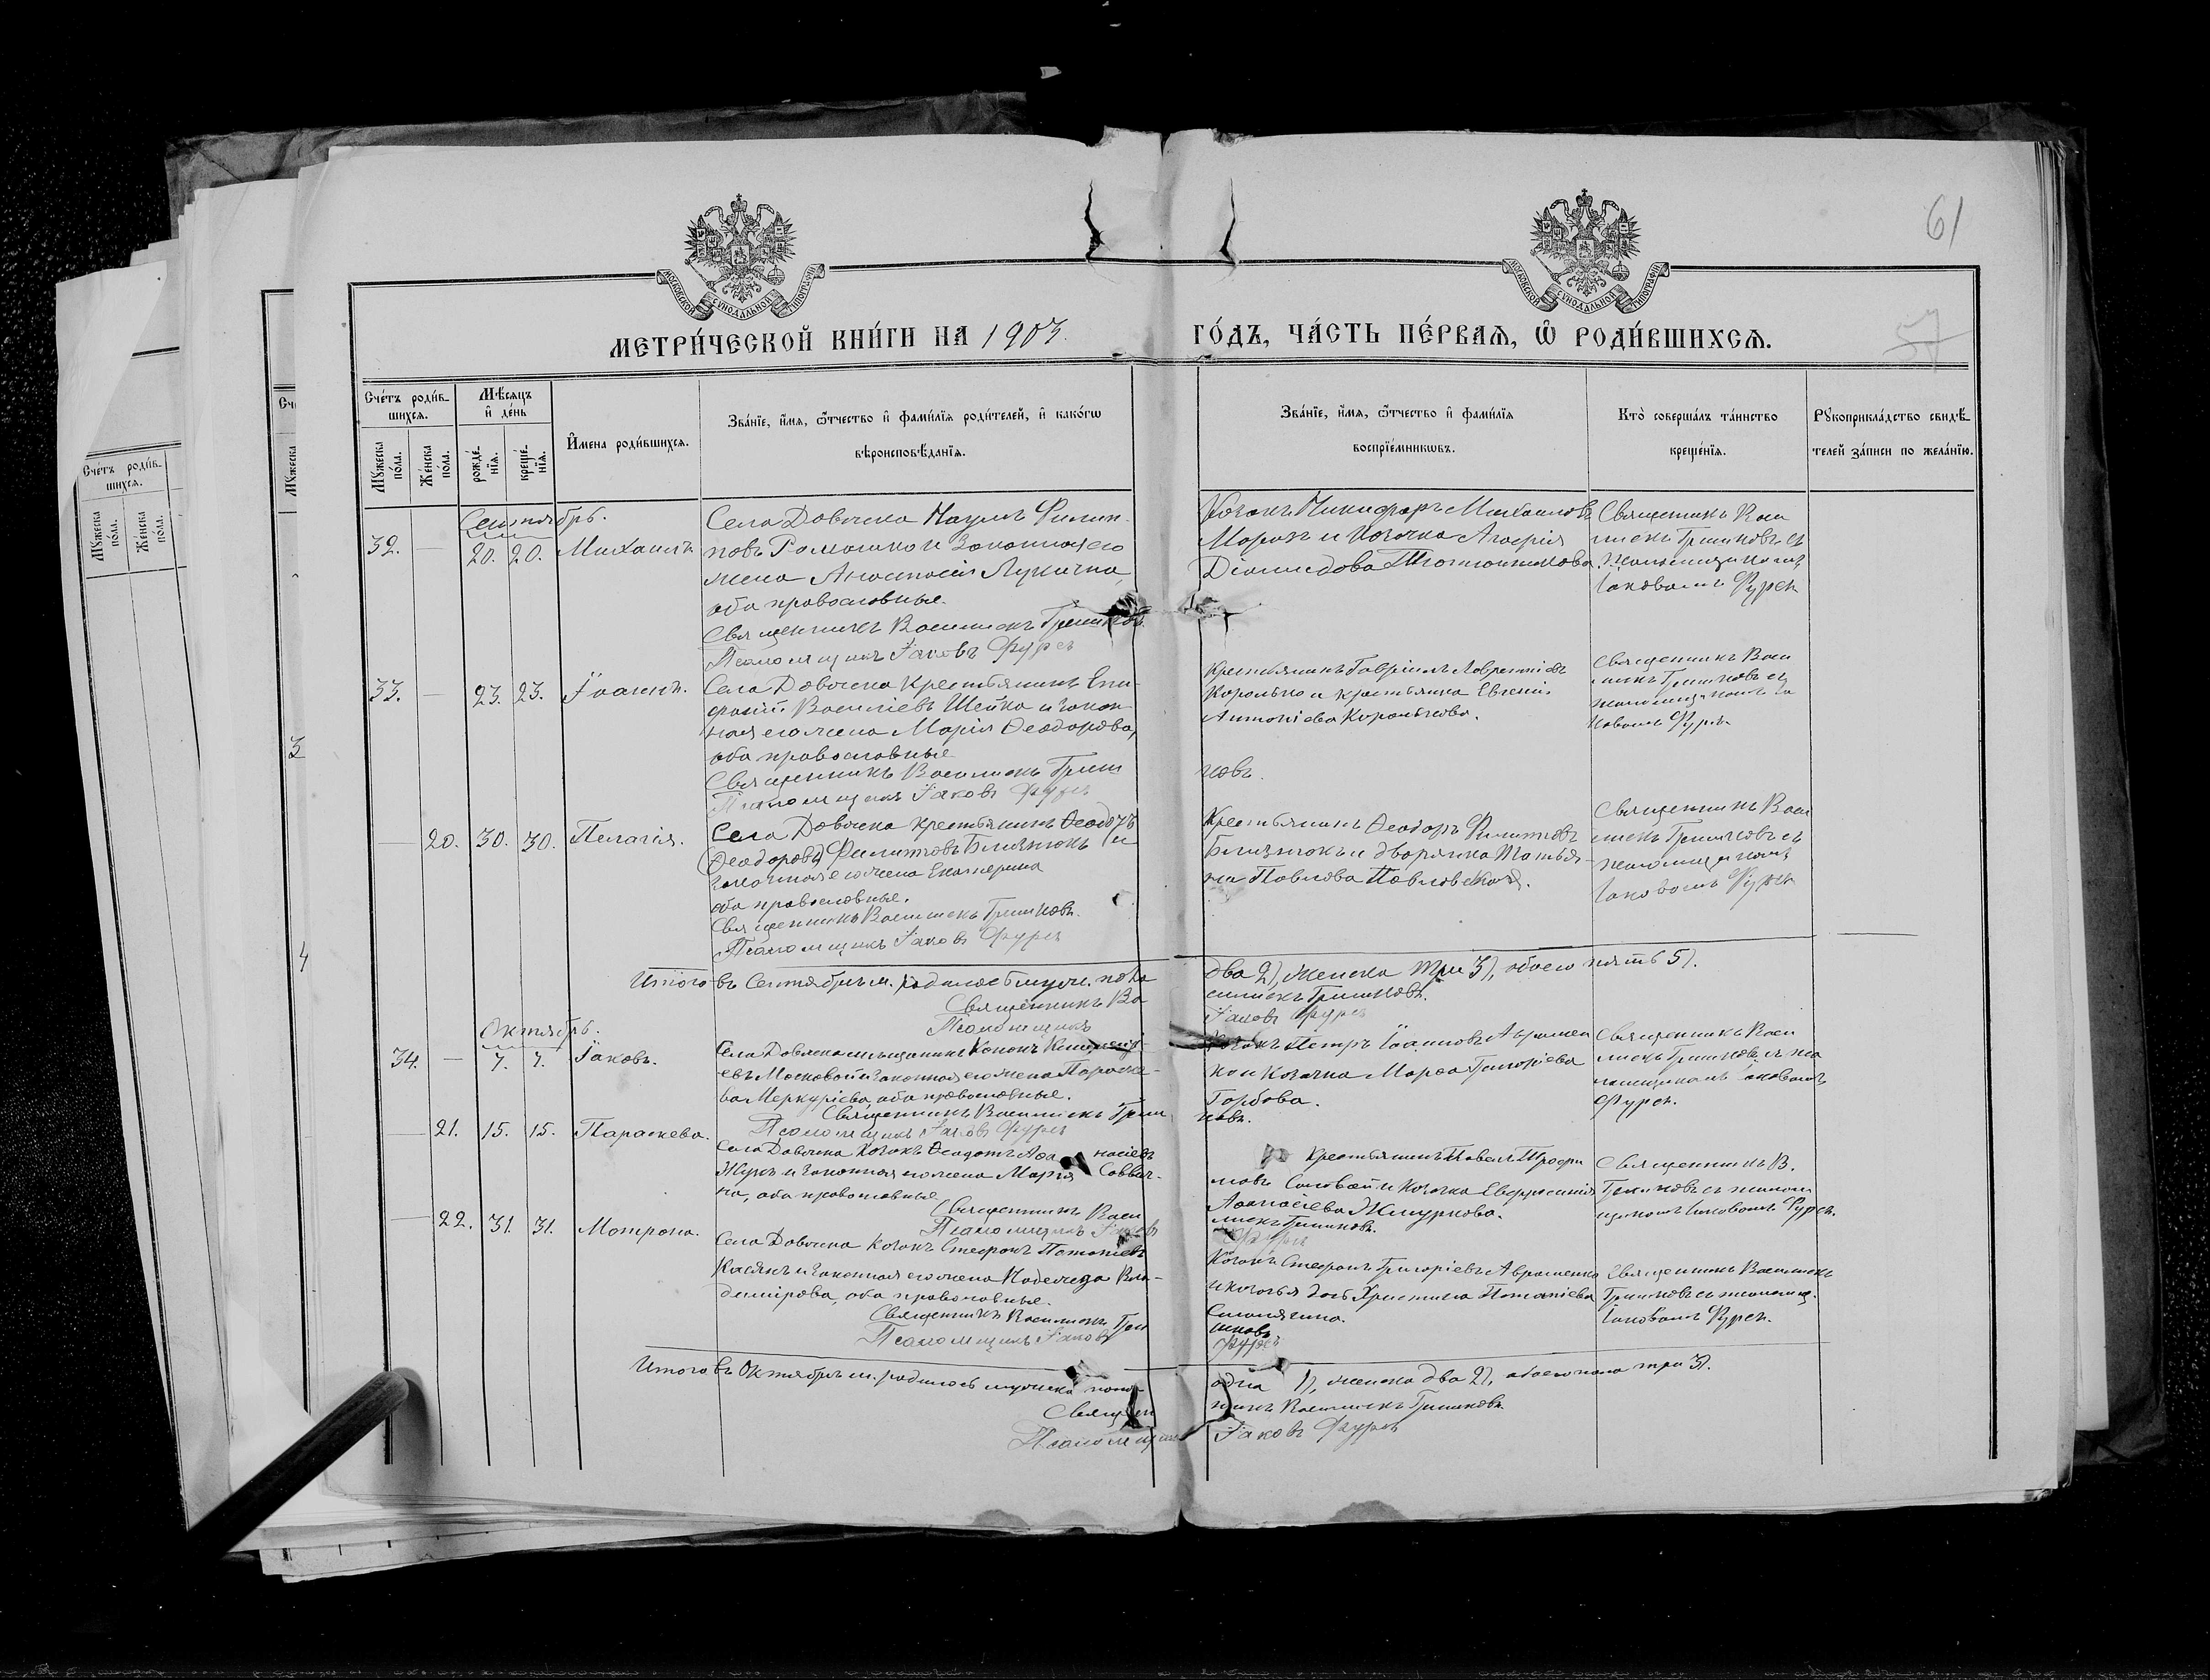 61
57
МОСКОВСКОЙ СУНОДАЛЬНОЙ ТИПОГРАФІИ
МОСКОВСКОЙ СУНОДАЛЬНОЙ ТИПОГРАФІИ
МЕТРИ́ЧЕСКОЙ КНИ́ГИ НА 1903. ГО́ДЪ, ЧА́СТЬ ПЕ́РВАѦ, Ѡ҆ РОДИ́ВШИХСѦ.
Сче́тъ роди́в-
шихсѧ.
Мѣ́сѧцъ
и҆ де́нь
Мꙋ́жеска
по́ла.
Же́нска
по́ла.
рожде́-
нїѧ.
креще́-
нїѧ.
И҆мена роди́вшихсѧ.
Зва́нїе, и҆́мѧ, ѻ҆́тчество и҆ фами́лїѧ роди́телей, и҆ како́гѡ
вѣроисповѣ́данїѧ.
Зва́нїе, и҆́мѧ, ѻ҆́тчество и҆ фами́лїѧ
воспрїе́мникѡвъ.
Кто̀ соверша́лъ та́инство
креще́нїѧ.
Рꙋкоприкла́дство свидѣ́-
телей за́писи по жела́нїю.
Сентябрь.
32. — 20. 20. Михаилъ
Села Довжека Наумъ Филип-
повъ Ромашко и законная его
жена Анастасія Лукична,
оба православные.
Священникъ Василискъ Гришковъ.
Псаломщикъ Іаковъ Фурса
Козакъ Никифоръ Михаиловъ
Морозъ и козачка Агафія
Діомидова
Священникъ Васи
лискъ Гришковъ съ
псаломщикомъ
Іаковомъ Фурса
33. — 23. 23. Іоаннъ.
Села Довжека крестьянинъ Епи-
фаній Василіевъ Шейко и закон-
ная его жена Марія Ѳеодорова,
оба православные
Священникъ Василискъ Гриш
ковъ.
Псаломщикъ Іаковъ Фурса
Крестьянинъ Гавріилъ Лаврентіевъ
Королько и крестьянка Евгенія
Антоніева Королькова.
Священникъ Васи
лискъ Гришковъ съ
псаломщикомъ Іа
ковомъ Фурса
— 20. 30. 30. Пелагія.
Села Довжека крестьянинъ Ѳеодоръ
(Ѳеодоровъ) Филипповъ Близнюкъ и
законная его жена Екатерина
оба православные.
Священникъ Василискъ Гришковъ.
Псаломщикъ Іаковъ Фурса
Крестьянинъ Ѳеодоръ Филипповъ
Близнюкъ и дворянка Татья-
на Павлова Павловская.
Священникъ Васи
лискъ Гришковъ съ
псаломщикомъ
Іаковомъ Фурса
Итого въ Сентябрѣ м. родилось мужс. пола два 2), женска три 3), обоего пять 5).
Священникъ Ва силискъ Гришковъ.
Псаломщикъ Іаковъ Фурса
Октябрь.
34. — 7. 7. Іаковъ.
Села Довжека мѣщанинъ Кононъ
евъ Московой и законная его жена Параске-
ва Меркуріева, оба православные.
Священникъ Василискъ Гриш ковъ.
Псаломщикъ Іаковъ Фурса
Козакъ Петръ Іоанновъ Авромен
ко и козачка Марѳа Григоріева
Горбова.
Священникъ Васи
лискъ Гришковъ съ пса
ломщикомъ Іаковомъ
Фурса.
— 21. 15. 15. Параскева.
Села Довжека козакъ Ѳеодотъ Аѳа насіевъ
Жукъ и законная его жена Марія Саввич-
на, оба православные
Священникъ Васи лискъ Гришковъ.
Псаломщикъ Іаковъ Фурса
Крестьянинъ Павелъ Трофи
мовъ Соловей и козачка Евфросинія
Аѳанасіева Жмуркова.
Священникъ В.
Гришковъ съ псалом
щикомъ Іаковомъ Фурса.
— 22. 31. 31. Матрона.
Села Довжека козакъ Стефанъ Потапіевъ
Касянъ и законная его жена Надежда Вла-
димірова, оба православные.
Священникъ Василискъ Гри шковъ
Псаломщикъ Іаковъ Фурса
Козакъ Стефанъ Григоріевъ Авраменко
и козачья дочь Христина Потапіева
Священникъ Василискъ
Гришковъ съ псаломщ.
Іаковомъ Фурса.
Итого въ Октябрѣ м. родилось мужска пола одна 1), женска два 2), обоего пола три 3).
Священ никъ Василискъ Гришковъ.
Псаломщикъ Іаковъ Фурса